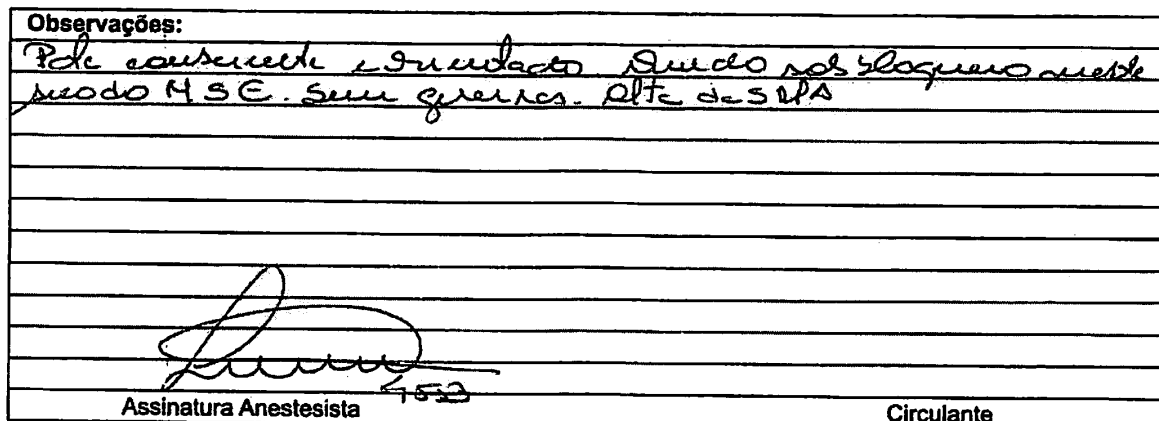 Observações:
Pcte consciente e orientado. Ainda sob bloqueio aneste
siado MSE. Sem queixas. Alta da SRPA
4553
Assinatura Anestesista
Circulante